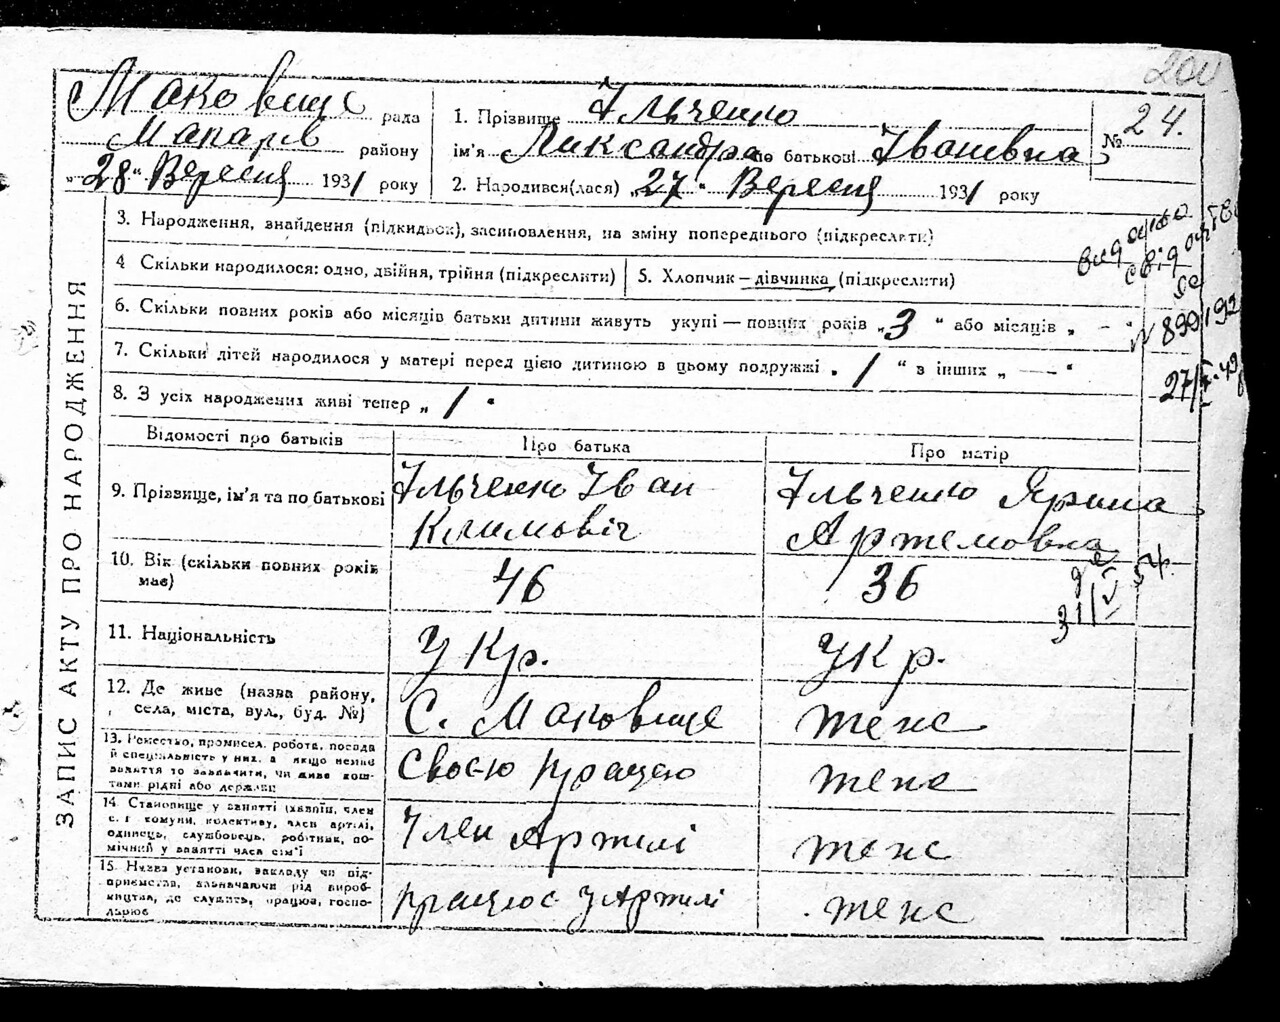 200
Маковище рада
Макарів району
„28“ Вересня 1931 року
1. Прізвище Ільченко
ім'я Ликсандра по батькові Івановна
2. Народився(лася) „27“ Вересня 1931 року
№ 24.
ЗАПИС АКТУ ПРО НАРОДЖЕННЯ
3. Народження, знайдення (підкидьок), засиновлення, на зміну попереднього (підкреслити)
4 Скільки народилося: одно, двійня, трійня (підкреслити)
5. Хлопчик—дівчинка (підкреслити)
6. Скільки повних років або місяців батьки дитини живуть укупі — повних років „3“ або місяців „ — “
7. Скільки дітей народилося у матері перед цією дитиною в цьому подружжі „1“ з інших „ — “
8. З усіх народжених живі тепер „1“
видано
свідоцтво
27/
Відомості про батьків
Про батька
Про матір
9. Прізвище, ім'я та по батькові
Ільченко Іван
Климовіч
Ільченко Ярина
Артемовна
10. Вік (скільки повних років
має)
46
36
31/V 54.
11. Національність
Укр.
Укр.
12. Де живе (назва району,
села, міста, вул., буд. №)
С. Маковище
теж
13. Ремество, промисел, робота, посада
й спеціальність у них, а якщо немає
заняття то зазначити, чи живе кош-
тами рідні або держави
Своєю працею
теж
14. Становище у занятті (хазяїн, член
с. г комуни, колективу, член артілі,
одинець, службовець, робітник, по-
мічний у занятті член сім'ї
Член Артилі
теж
15. Назва установи, закладу чи під-
приємства, зазначаючи рід вироб-
ництва, де служить, працює, госпо-
дарює
працює у Артилі
теж